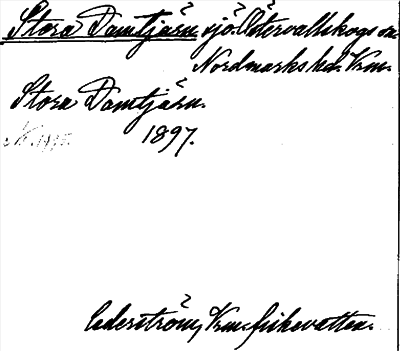 Stora Damtjärn sjö. Östervallskogs sn
Nordmarks hd. Vrm.
Stora Damtjärn.
1897.
Cederström, Vrm. fiskevatten.